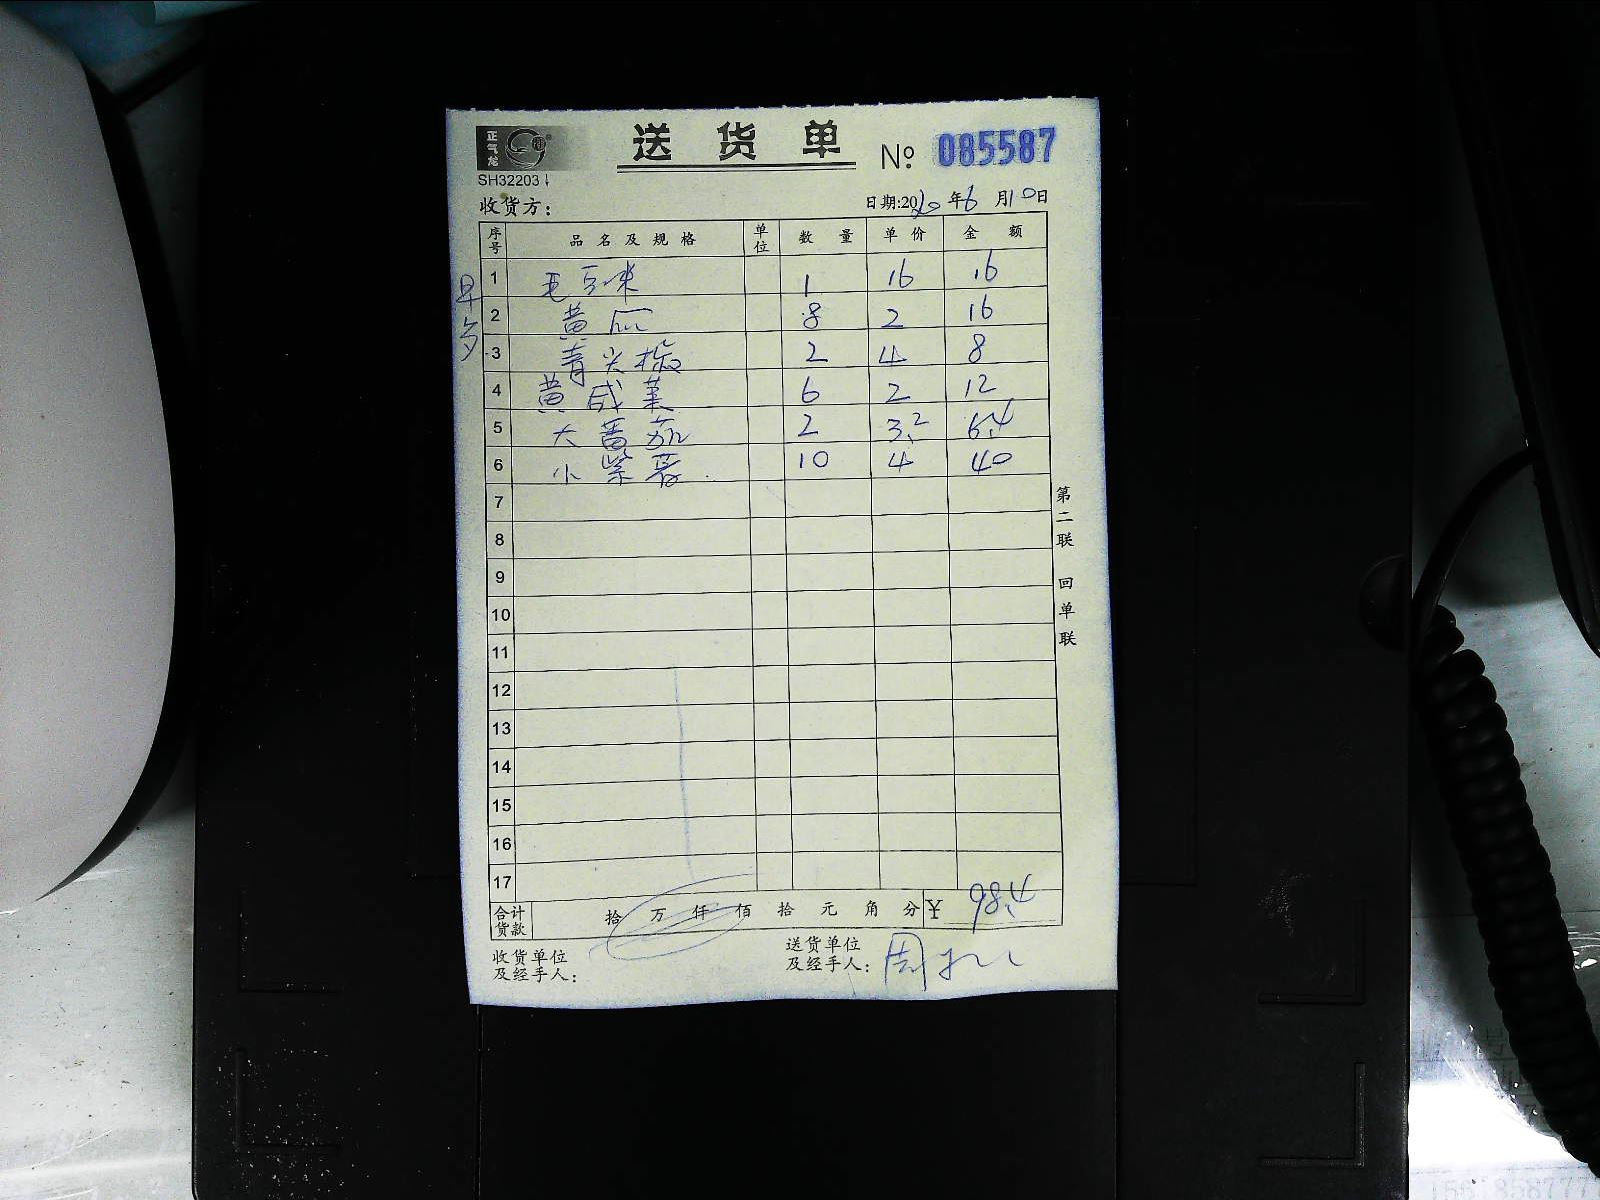 正气龙
送货单 № 085587
SH32203
收货方： 日期:2020年6月10日
序号 品名及规格 单位 数量 单价 金额
1 毛豆米 1 16 16
2 黄瓜 8 2 16
3 青尖椒 2 4 8
4 黄咸菜 6 2 12
5 大番茄 2 3.2 6.4
6 小紫薯 10 4 40
7
8
9
10
11
12
13
14
15
16
17
合计货款 拾 万 仟 佰 拾 元 角 分 ¥ 98.4
收货单位及经手人： 送货单位及经手人： 周
第二联 回单联